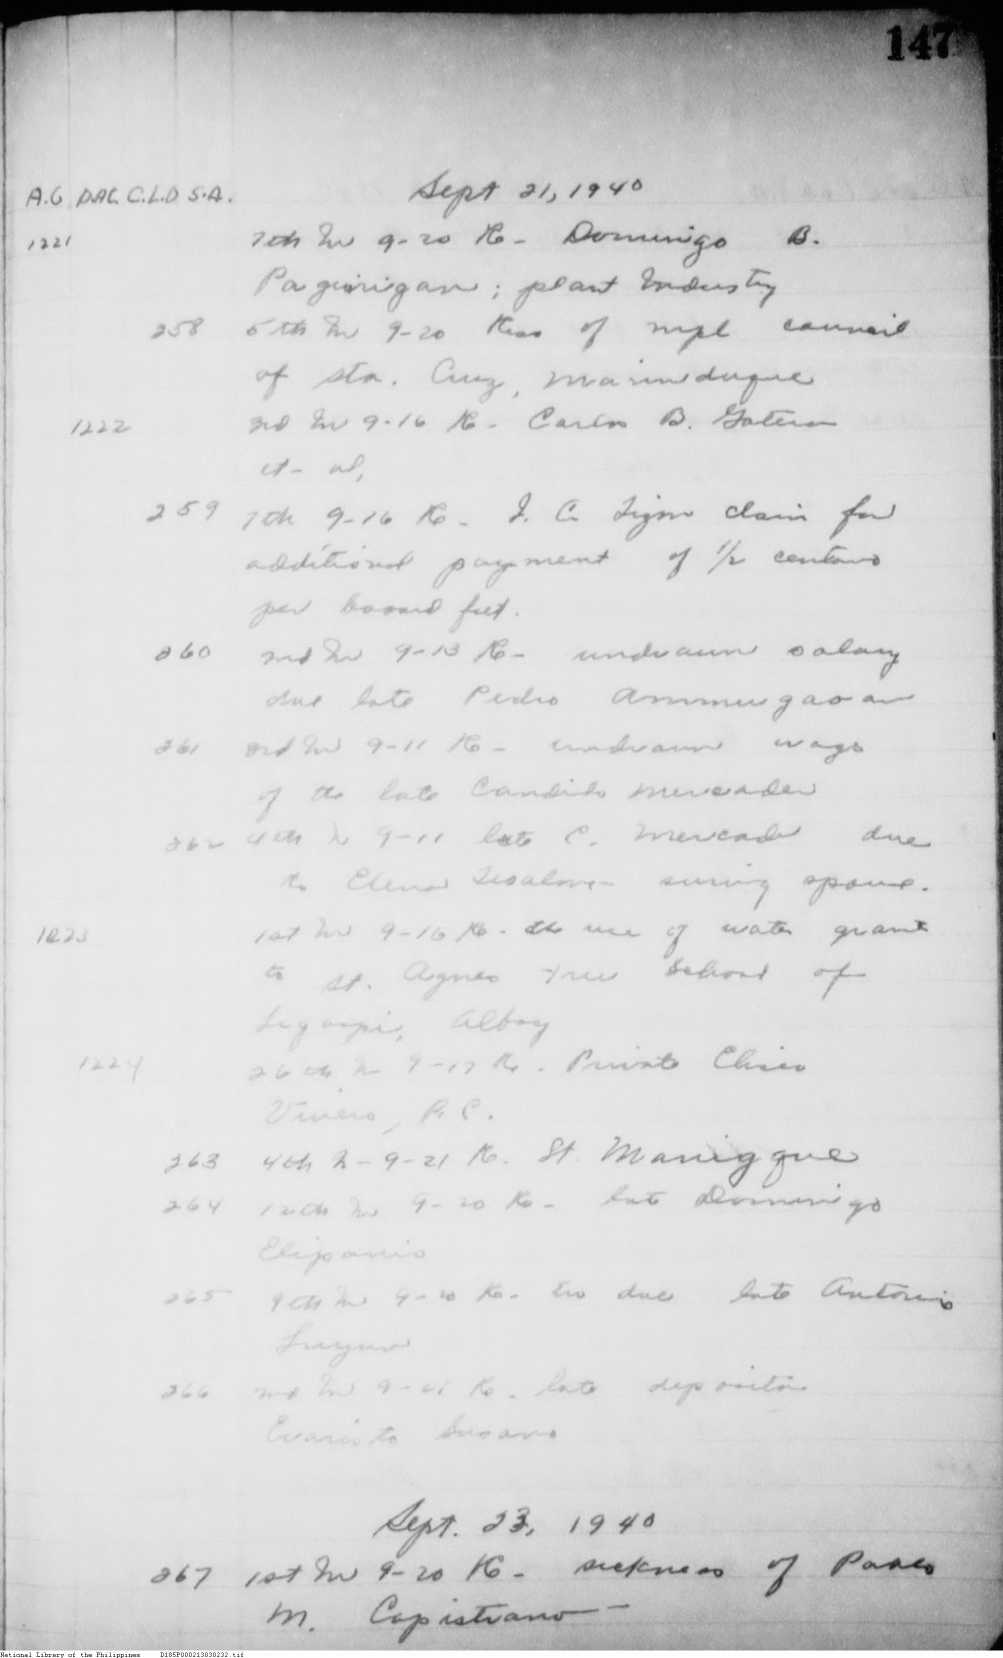 147
A.G DAC. C.L.D S.A. Sept 21, 1940
1221 7th In 9-20 Re - Domingo B.
Paguirigan; plant Industry
258 5th In 9-20 Reso of mpl council
of sta. Cruz, Marinduque
1222 3rd In 9-16 Re - Carlos B.
et - al,
259 7th 9-16 Re - claim for
additional payment of 1/2 centavo
per board feet.
260 2nd In 9-13 Re - undrawn salary
due late Pedro
261 3rd In 9-11 Re - undrawn wage
of the late Candido Mercader
262 4th In 9-11 late C. Mercade due
to Elena spouse.
1223 1st In 9-16 Re - the use of water grant
to St. Agnes Free School of
Legaspi, Albay
1224 26th In 9-17 Re. Private Eliseo
P. C.
263 4th In - 9-21 Re. St. Manigque
264 12th In 9-20 Re - late Domingo
Elipanio
265 9th In 9-20 Re - due late Antonio
266 2nd In Re. late depositor
Evaristo Susano
Sept. 23, 1940
267 1st In 9-20 Re - sickness of Pablo
M. Capistrano -
National Library of the Philippines D185P000213030232.tif